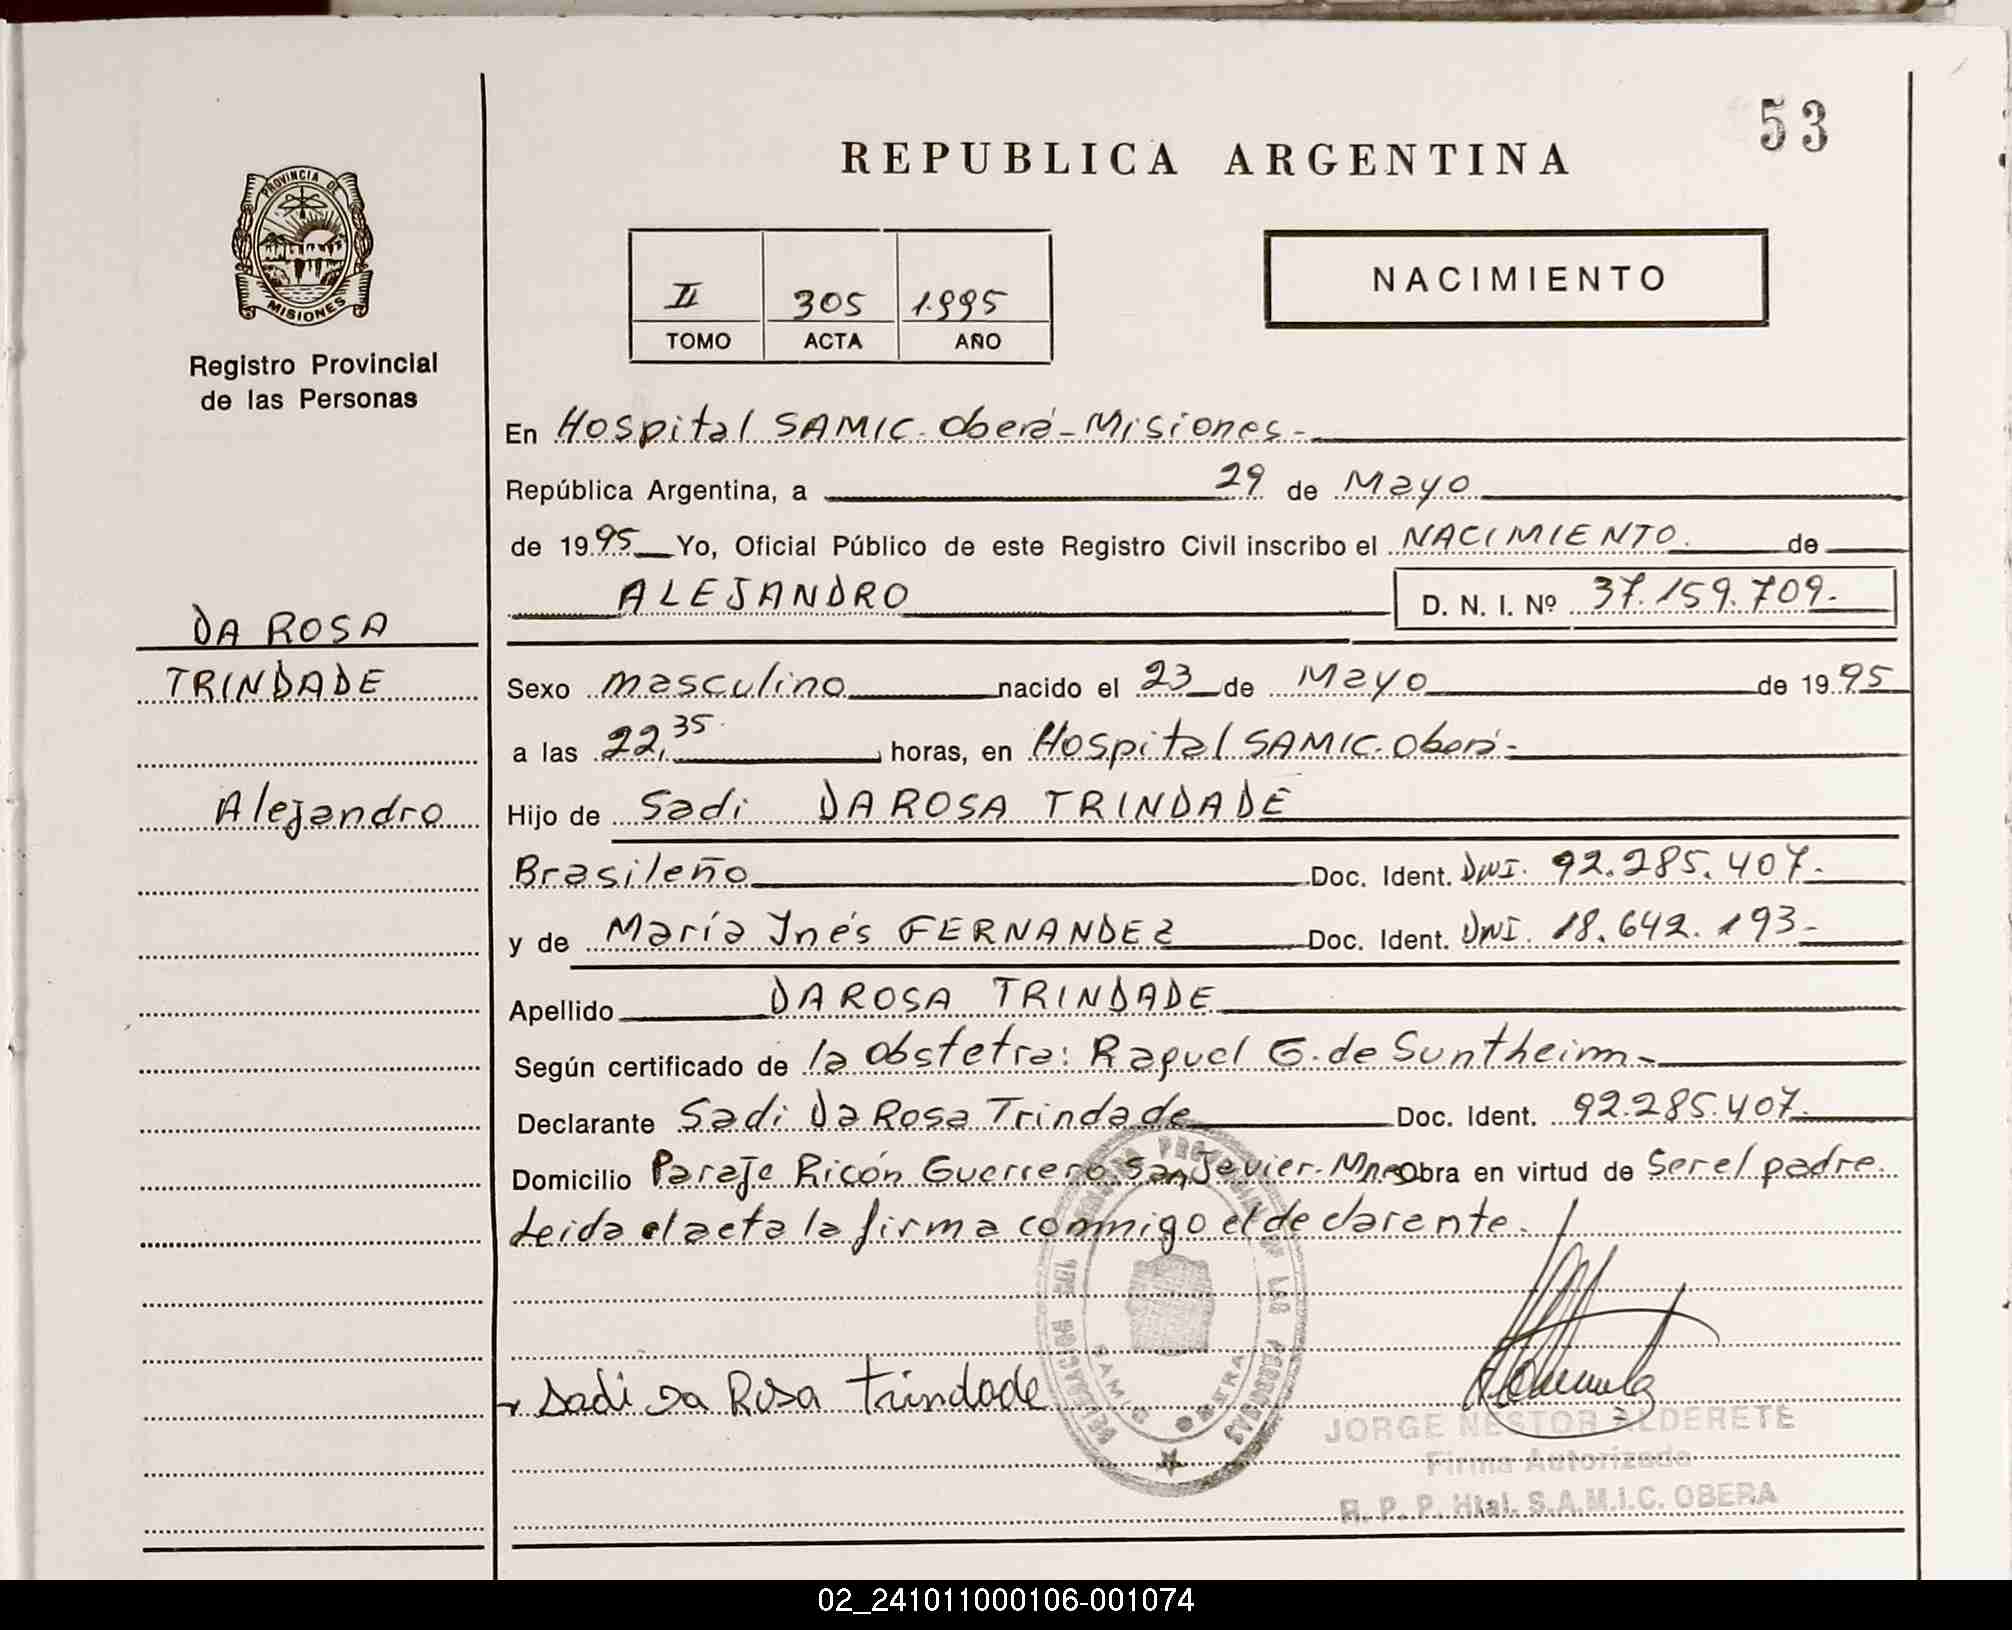 53
REPUBLICA ARGENTINA
PROVINCIA DE
MISIONES
Registro Provincial
de las Personas
II 305 1.995
TOMO ACTA AÑO
NACIMIENTO
En Hospital SAMIC. Oberá - Misiones -
República Argentina, a 29 de Mayo
de 1995 Yo, Oficial Público de este Registro Civil inscribo el NACIMIENTO. de
ALEJANDRO D. N. I. Nº 37.159.709.-
DA ROSA
TRINDADE
Alejandro
Sexo masculino nacido el 23 de Mayo de 1995
a las 22,35 horas, en Hospital SAMIC. Oberá -
Hijo de Sadi DA ROSA TRINDADE
Brasileño Doc. Ident. DNI. 92.285.407.-
y de María Inés FERNANDEZ Doc. Ident. DNI. 18.642.193.-
Apellido DA ROSA TRINDADE
Según certificado de la obstetra: Raquel G. de Suntheim -
Declarante Sadi Da Rosa Trindade Doc. Ident. 92.285.407.
Domicilio Paraje Ricón Guerrero San Javier. Mnes Obra en virtud de Ser el padre.
Leida el acta la firma conmigo el declarente.
Sadi da Rosa Trindade
JORGE NESTOR ALDERETE
Firma Autorizada
R. P. P. Htal. S.A.M.I.C. OBERA
02_241011000106-001074